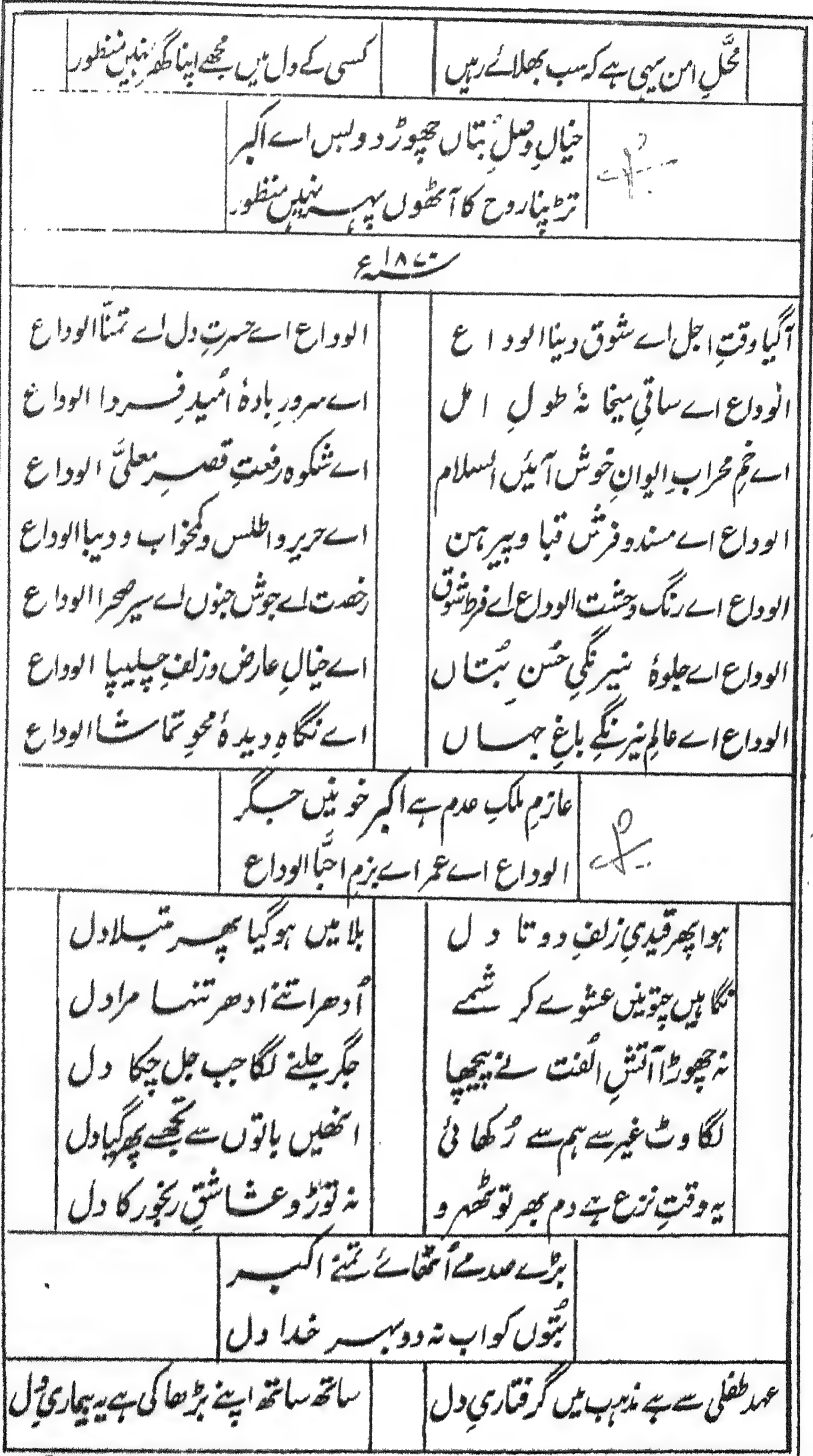 محّلِ امن یہی ہے کہ سب بھلائے رہیں کسی کے دل میں مجھے اپنا گھر نہیں منظور
خیالِ وصلِ بتاں چھوڑ دو بس اے اکبر
تڑپنا روح کا آٹھوں پہر نہیں منظور
۱۸۷۰ء
آگیا وقتِ اجل اے شوق دینا الوداع الوداع اے حسرتِ دل اے تمنّا الوداع
الوداع اے ساقیِ میخانۂ طولِ امل اے سرورِ بادۂ اُمیدِ فردا الوداع
اے خمِ محرابِ ایوانِ خوش آئیں السلام اے شکوہ رفعتِ قصرِ معلیَّ الوداع
الوداع اے مسند و فرش قبا و پیرہن اے حریر و اطلس و کمخواب و دیبا الوداع
الوداع اے رنگ وحشت الوداع اے فرط شوق رخصت اے جوش جنوں اے سیر صحرا الوداع
الوداع اے جلوۂ نیرنگیِ حُسنِ بُتاں اے خیالِ عارض و زلفِ چلیپا الوداع
الوداع اے عالمِ نیرنگیِ باغِ جہاں اے نگاہِ دیدۂ محوِ تماشا الوداع
عازمِ ملکِ عدم ہے اکبر خونیں جگر
الوداع اے عمر اے بزمِ احبّا الوداع
ہوا پھر قیدیِ زلفِ دوتا دل بلا میں ہوگیا پھر مبتلا دل
نگاہیں چتونیں عشوے کرشمے اُدھر اتنے ادھر تنہا مرا دل
نہ چھوڑا آتشِ الُفت نے پیچھا جگر جلنے لگا جب جل چکا دل
لگاوٹ غیر سے ہم سے رُکھائی انھیں باتوں سے تجھسے پھر گیا دل
یہ وقتِ نزع ہے دم بھر تو ٹھہرو نہ توڑو عاشقِ رنجور کا دل
بڑے صدمے اُٹھائے تمنے اکبر
بتُوں کو اب نہ دو بہر خدا دل
عہد طفلی سے ہے مذہب میں گرفتاریِ دل ساتھ ساتھ اپنے بڑھا کی ہے یہ بیماریِ دل